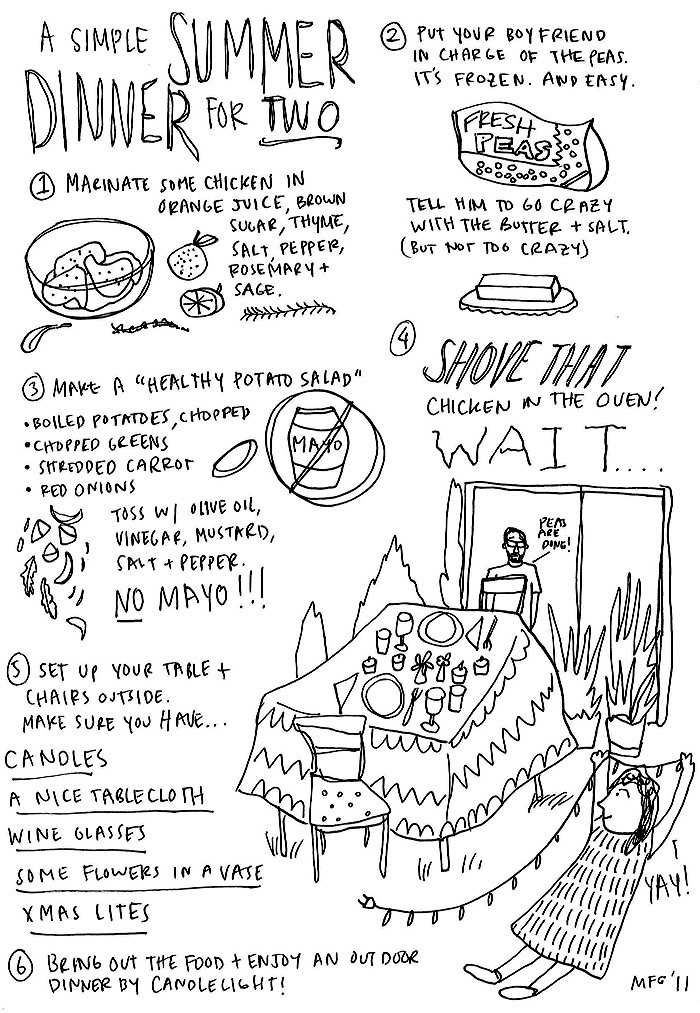 A SIMPLE SUMMER
DINNER FOR TWO
1 MARINATE SOME CHICKEN IN
ORANGE JUICE, BROWN
SUGAR, THYME,
SALT, PEPPER,
ROSEMARY +
SAGE.
2 PUT YOUR BOYFRIEND
IN CHARGE OF THE PEAS.
IT'S FROZEN. AND EASY.
FRESH
PEAS
TELL HIM TO GO CRAZY
WITH THE BUTTER + SALT.
(BUT NOT TOO CRAZY)
3 MAKE A "HEALTHY POTATO SALAD"
• BOILED POTATOES, CHOPPED
• CHOPPED GREENS
• SHREDDED CARROT
• RED ONIONS
MAYO
TOSS W/ OLIVE OIL,
VINEGAR, MUSTARD,
SALT + PEPPER.
NO MAYO!!!
4 SHOVE THAT
CHICKEN IN THE OVEN!
WAIT....
PEAS
ARE
DONE!
5 SET UP YOUR TABLE +
CHAIRS OUTSIDE.
MAKE SURE YOU HAVE...
CANDLES
A NICE TABLECLOTH
WINE GLASSES
SOME FLOWERS IN A VASE
XMAS LITES
YAY!
6 BRING OUT THE FOOD + ENJOY AN OUTDOOR
DINNER BY CANDLELIGHT!
MFG '11